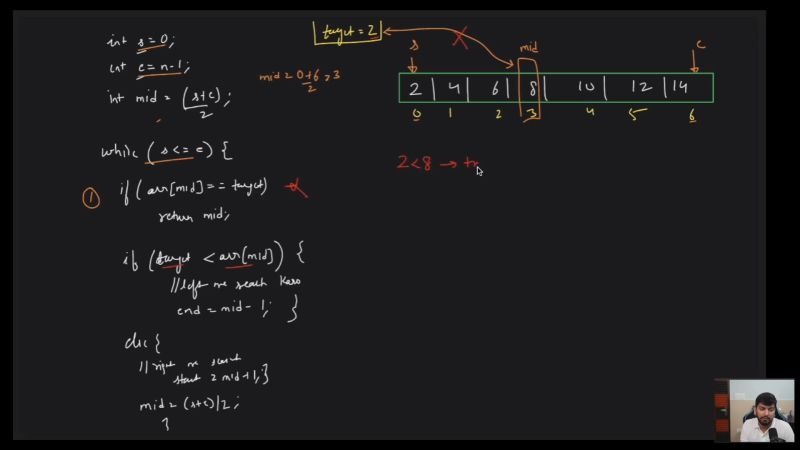 int s=0;
int e=n-1;
int mid = (s+e)/2;
while (s<=e) {
① if(arr[mid]==target)
return mid;
if (target < arr[mid]) {
//left me search karo
end = mid-1; }
else {
//right me search
start = mid+1; }
mid = (s+e)/2;
}
target = 2
mid = 0+6/2 = 3
s mid e
2 4 6 8 10 12 14
0 1 2 3 4 5 6
2<8 → tr